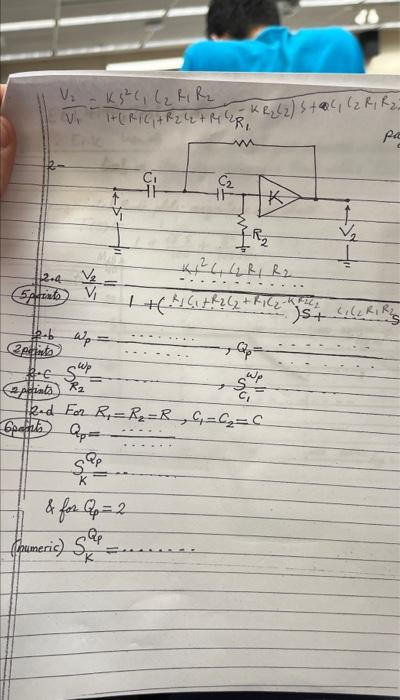 V₂/V₁ = K S² C₁ C₂ R₁ R₂ / 1+(R₁C₁+R₂C₂+R₁C₂-KR₂C₂)S+C₁C₂R₁R₂
2-
R₁
C₁
C₂
K
V₁
R₂
V₂
2.a V₂/V₁ = K S² C₁ C₂ R₁ R₂ / 1+(R₁C₁+R₂C₂+R₁C₂-KR₂C₂)S+C₁C₂R₁R₂S
5points
2.b ωp = ........ , Qp = ........
2points
2.c S^ωp_R₂ = ........ , S^ωp_C₁ = ........
2points
2.d For R₁=R₂=R , C₁=C₂=C
6points
Qp = ........
S^Qp_K = ........
& for Qp=2
(numeric) S^Qp_K = ........